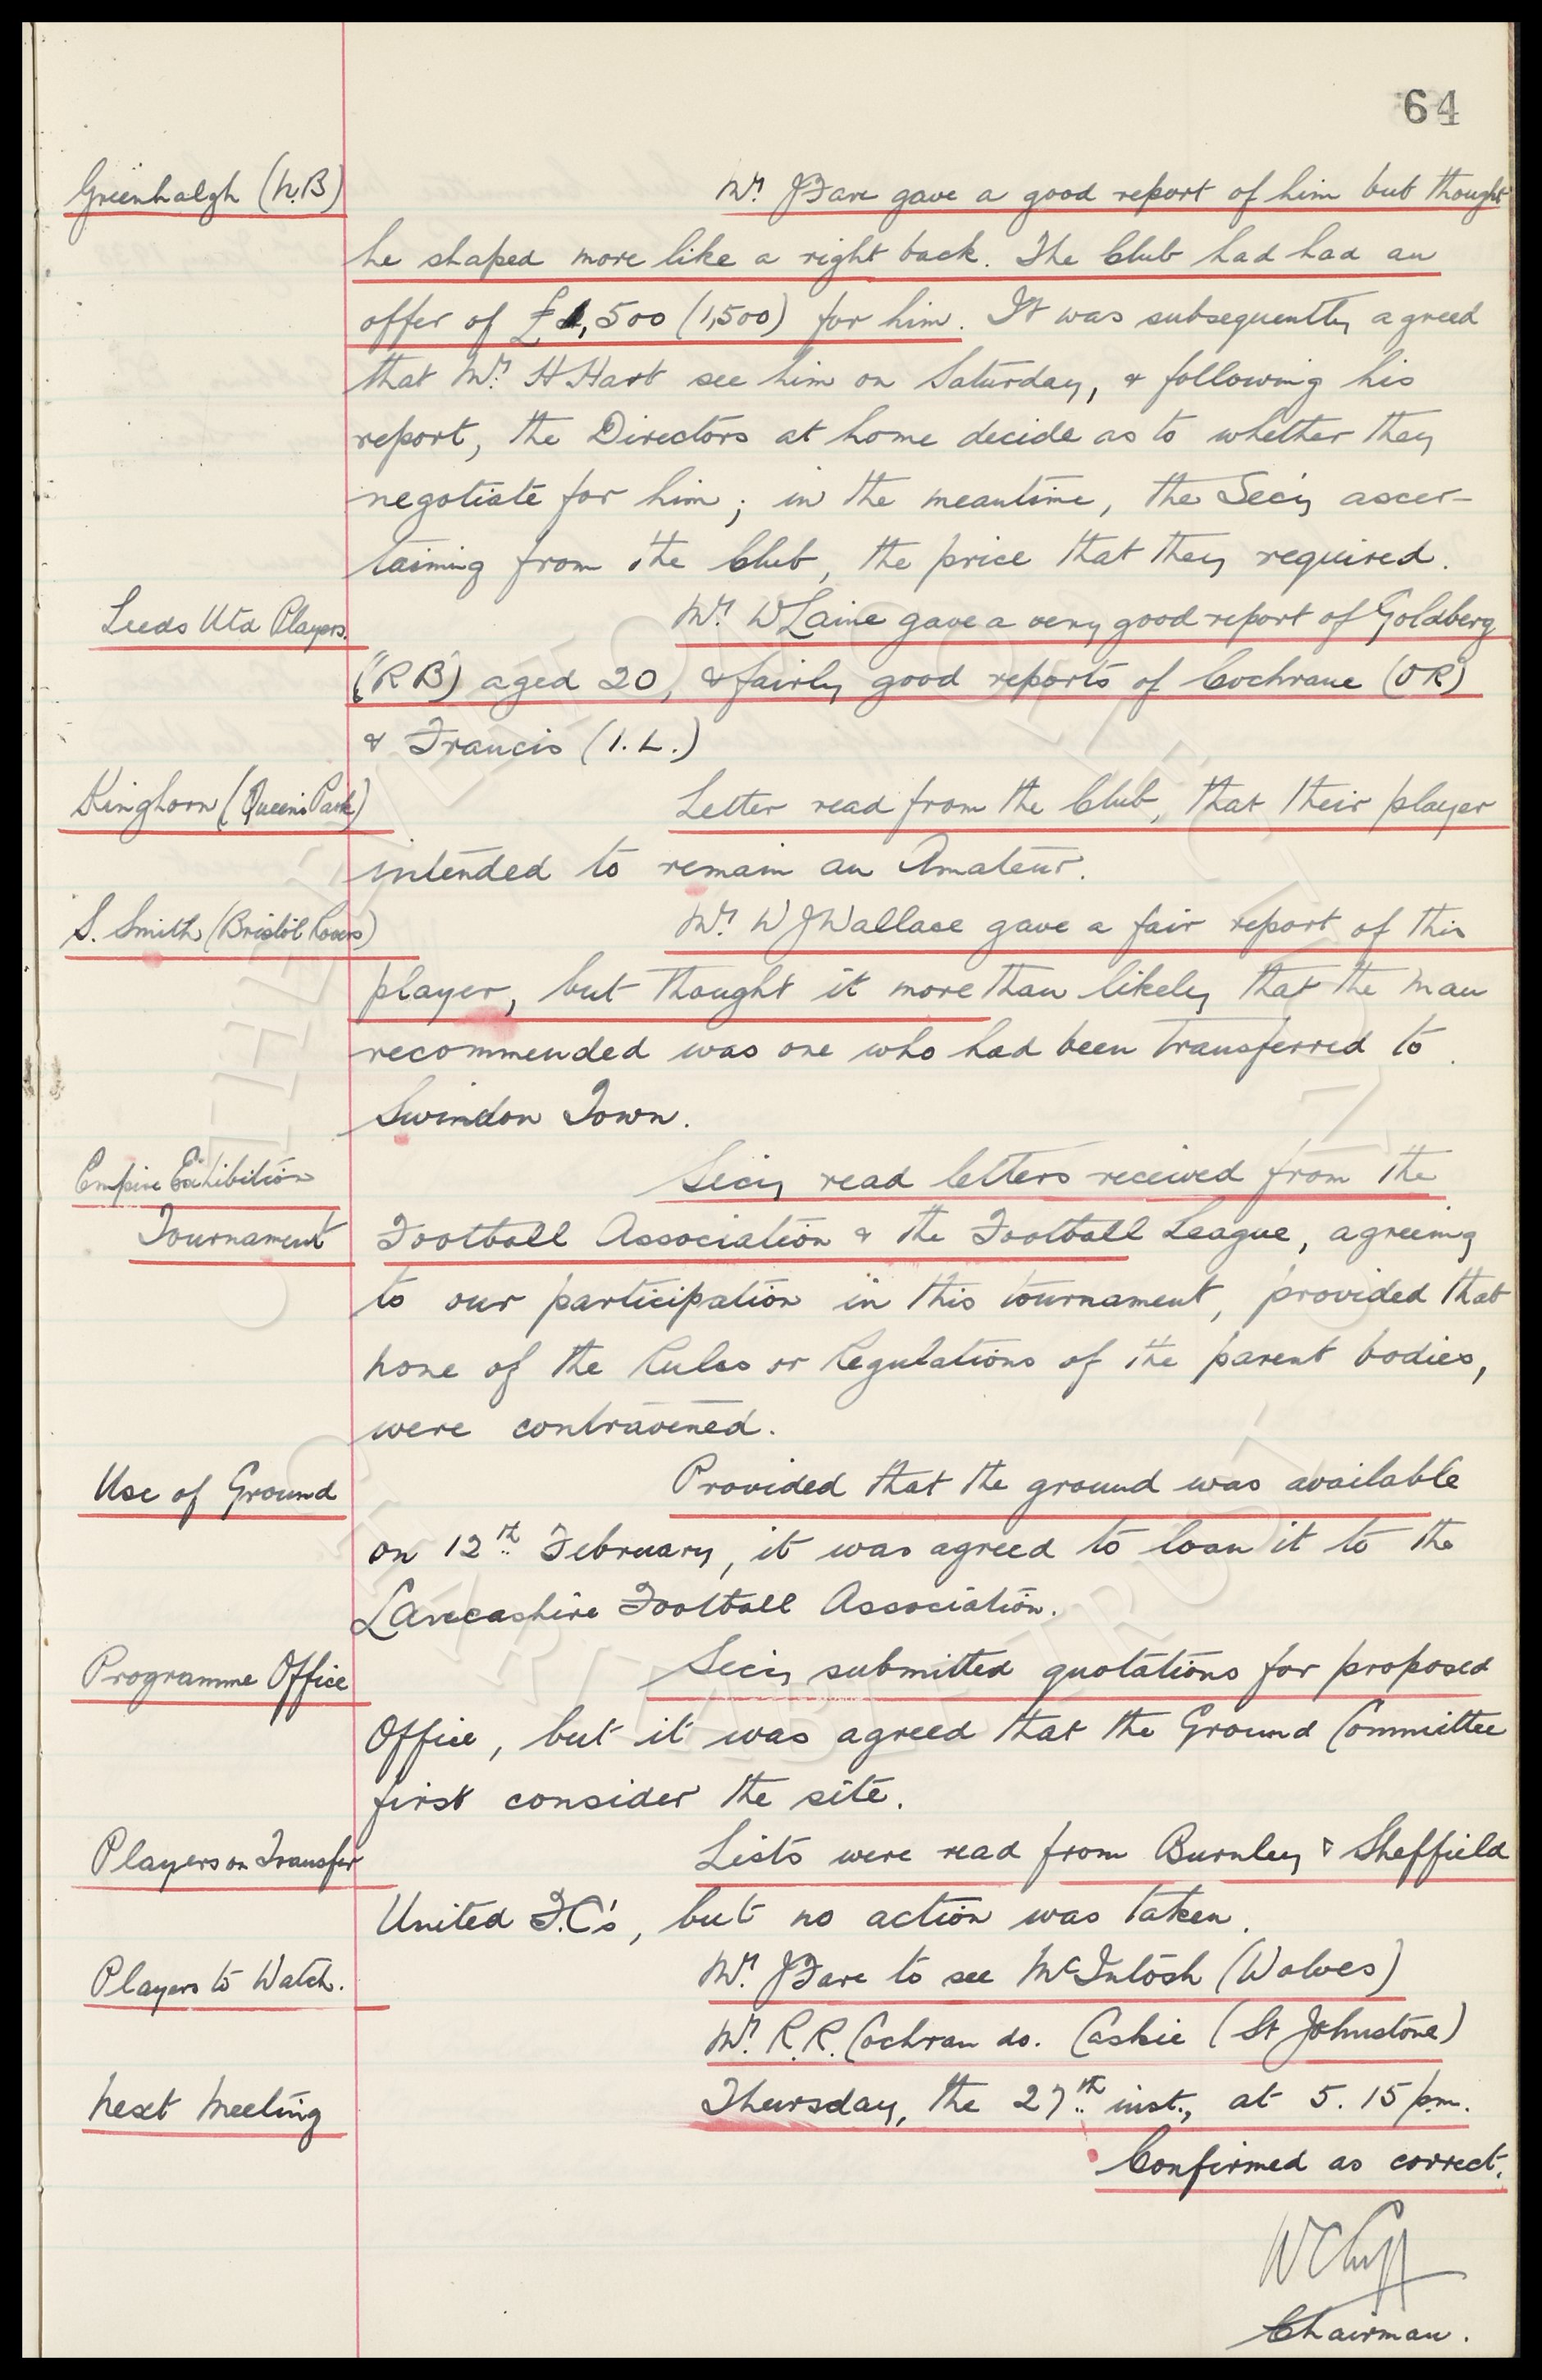 64
Greenhalgh (N.B) Mr. J Fare gave a good report of him but thought
he shaped more like a right back. The Club had had an
offer of £1,500 (1,500) for him. It was subsequently agreed
that Mr. H Hart see him on Saturday, & following his
report, the Directors at home decide as to whether they
negotiate for him; in the meantime, the Secy ascer-
taining from the Club, the price that they required.
Leeds Utd Players. Mr. W Laine gave a very good report of Goldberg
(RB) aged 20, & fairly good reports of Cochrane (OR)
& Francis (I.L.)
Kinghorn (Queens Park) Letter read from the Club, that their player
intended to remain an Amateur.
S. Smith (Bristol Rovers) Mr. W J Wallace gave a fair report of this
player, but thought it more than likely that the man
recommended was one who had been transferred to
Swindon Town.
Empire Exhibition Secy read letters received from the
Tournament Football Association & the Football League, agreeing
to our participation in this tournament, provided that
none of the Rules or Regulations of the parent bodies,
were contravened.
Use of Ground Provided that the ground was available
on 12th February, it was agreed to loan it to the
Lancashire Football Association.
Programme Office Secy submitted quotations for proposed
Office, but it was agreed that the Ground Committee
first consider the site.
Players on Transfer Lists were read from Burnley & Sheffield
United F.C's, but no action was taken.
Players to Watch. Mr. J Fare to see McIntosh (Wolves)
Mr. R.R. Cochran do. Caskie (St Johnstone)
Next Meeting Thursday, the 27th inst., at 5.15 p.m.
Confirmed as correct.
W C Cuff
Chairman.